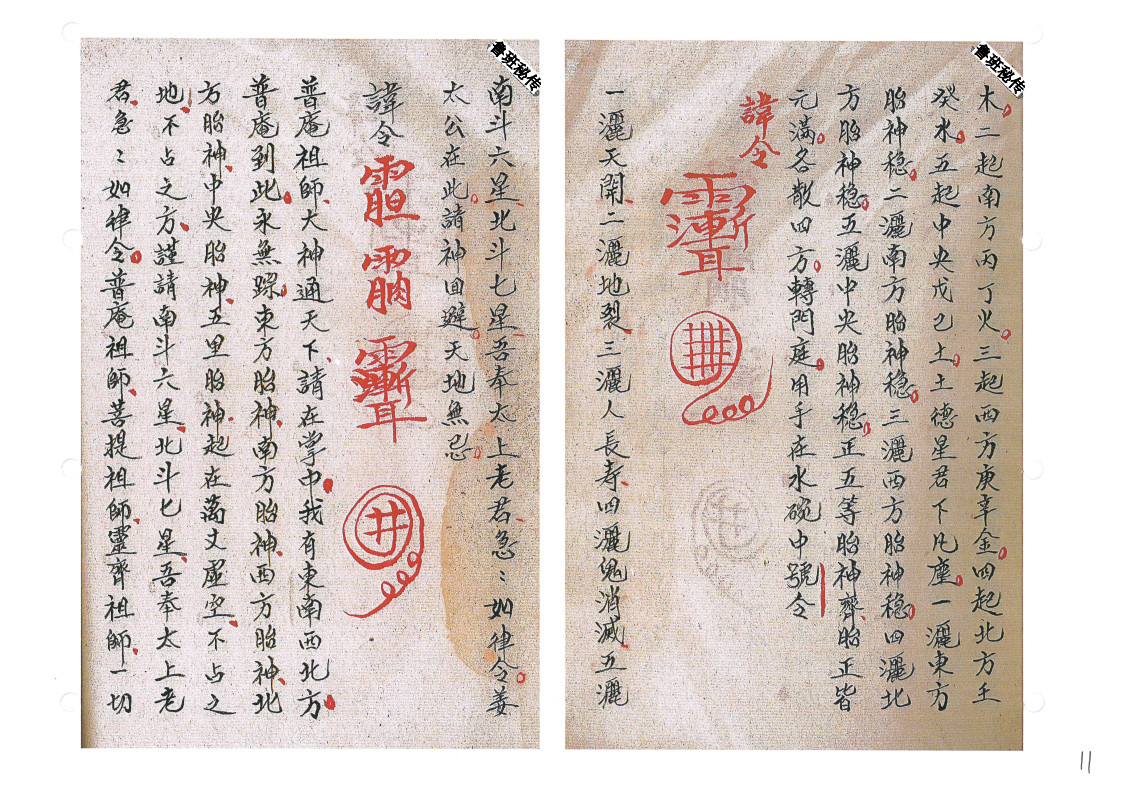 魯班秘传
木二起南方丙丁火三起西方庚辛金四起北方壬
癸水五起中央戊己土土德星君下凡塵一灑東方
胎神稳二灑南方胎神稳三灑西方胎神稳四灑北
方胎神稳五灑中央胎神稳正五等胎神齊胎正皆
元滿各散四方轉門庭用手在水碗中號令
諱令
一灑天開二灑地裂三灑人長寿四灑鬼消滅五灑
魯班秘传
南斗六星北斗七星吾奉太上老君急〻如律令姜
太公在此請神回避天地無忌
諱令
普庵祖師大神通天下請在掌中我有東南西北方
普庵到此永無踪東方胎神南方胎神西方胎神北
方胎神中央胎神五里胎神起在萬丈虛空不占之
地不占之方謹請南斗六星北斗七星吾奉太上老
君急〻如律令普庵祖師菩提祖師靈齊祖師一切
11